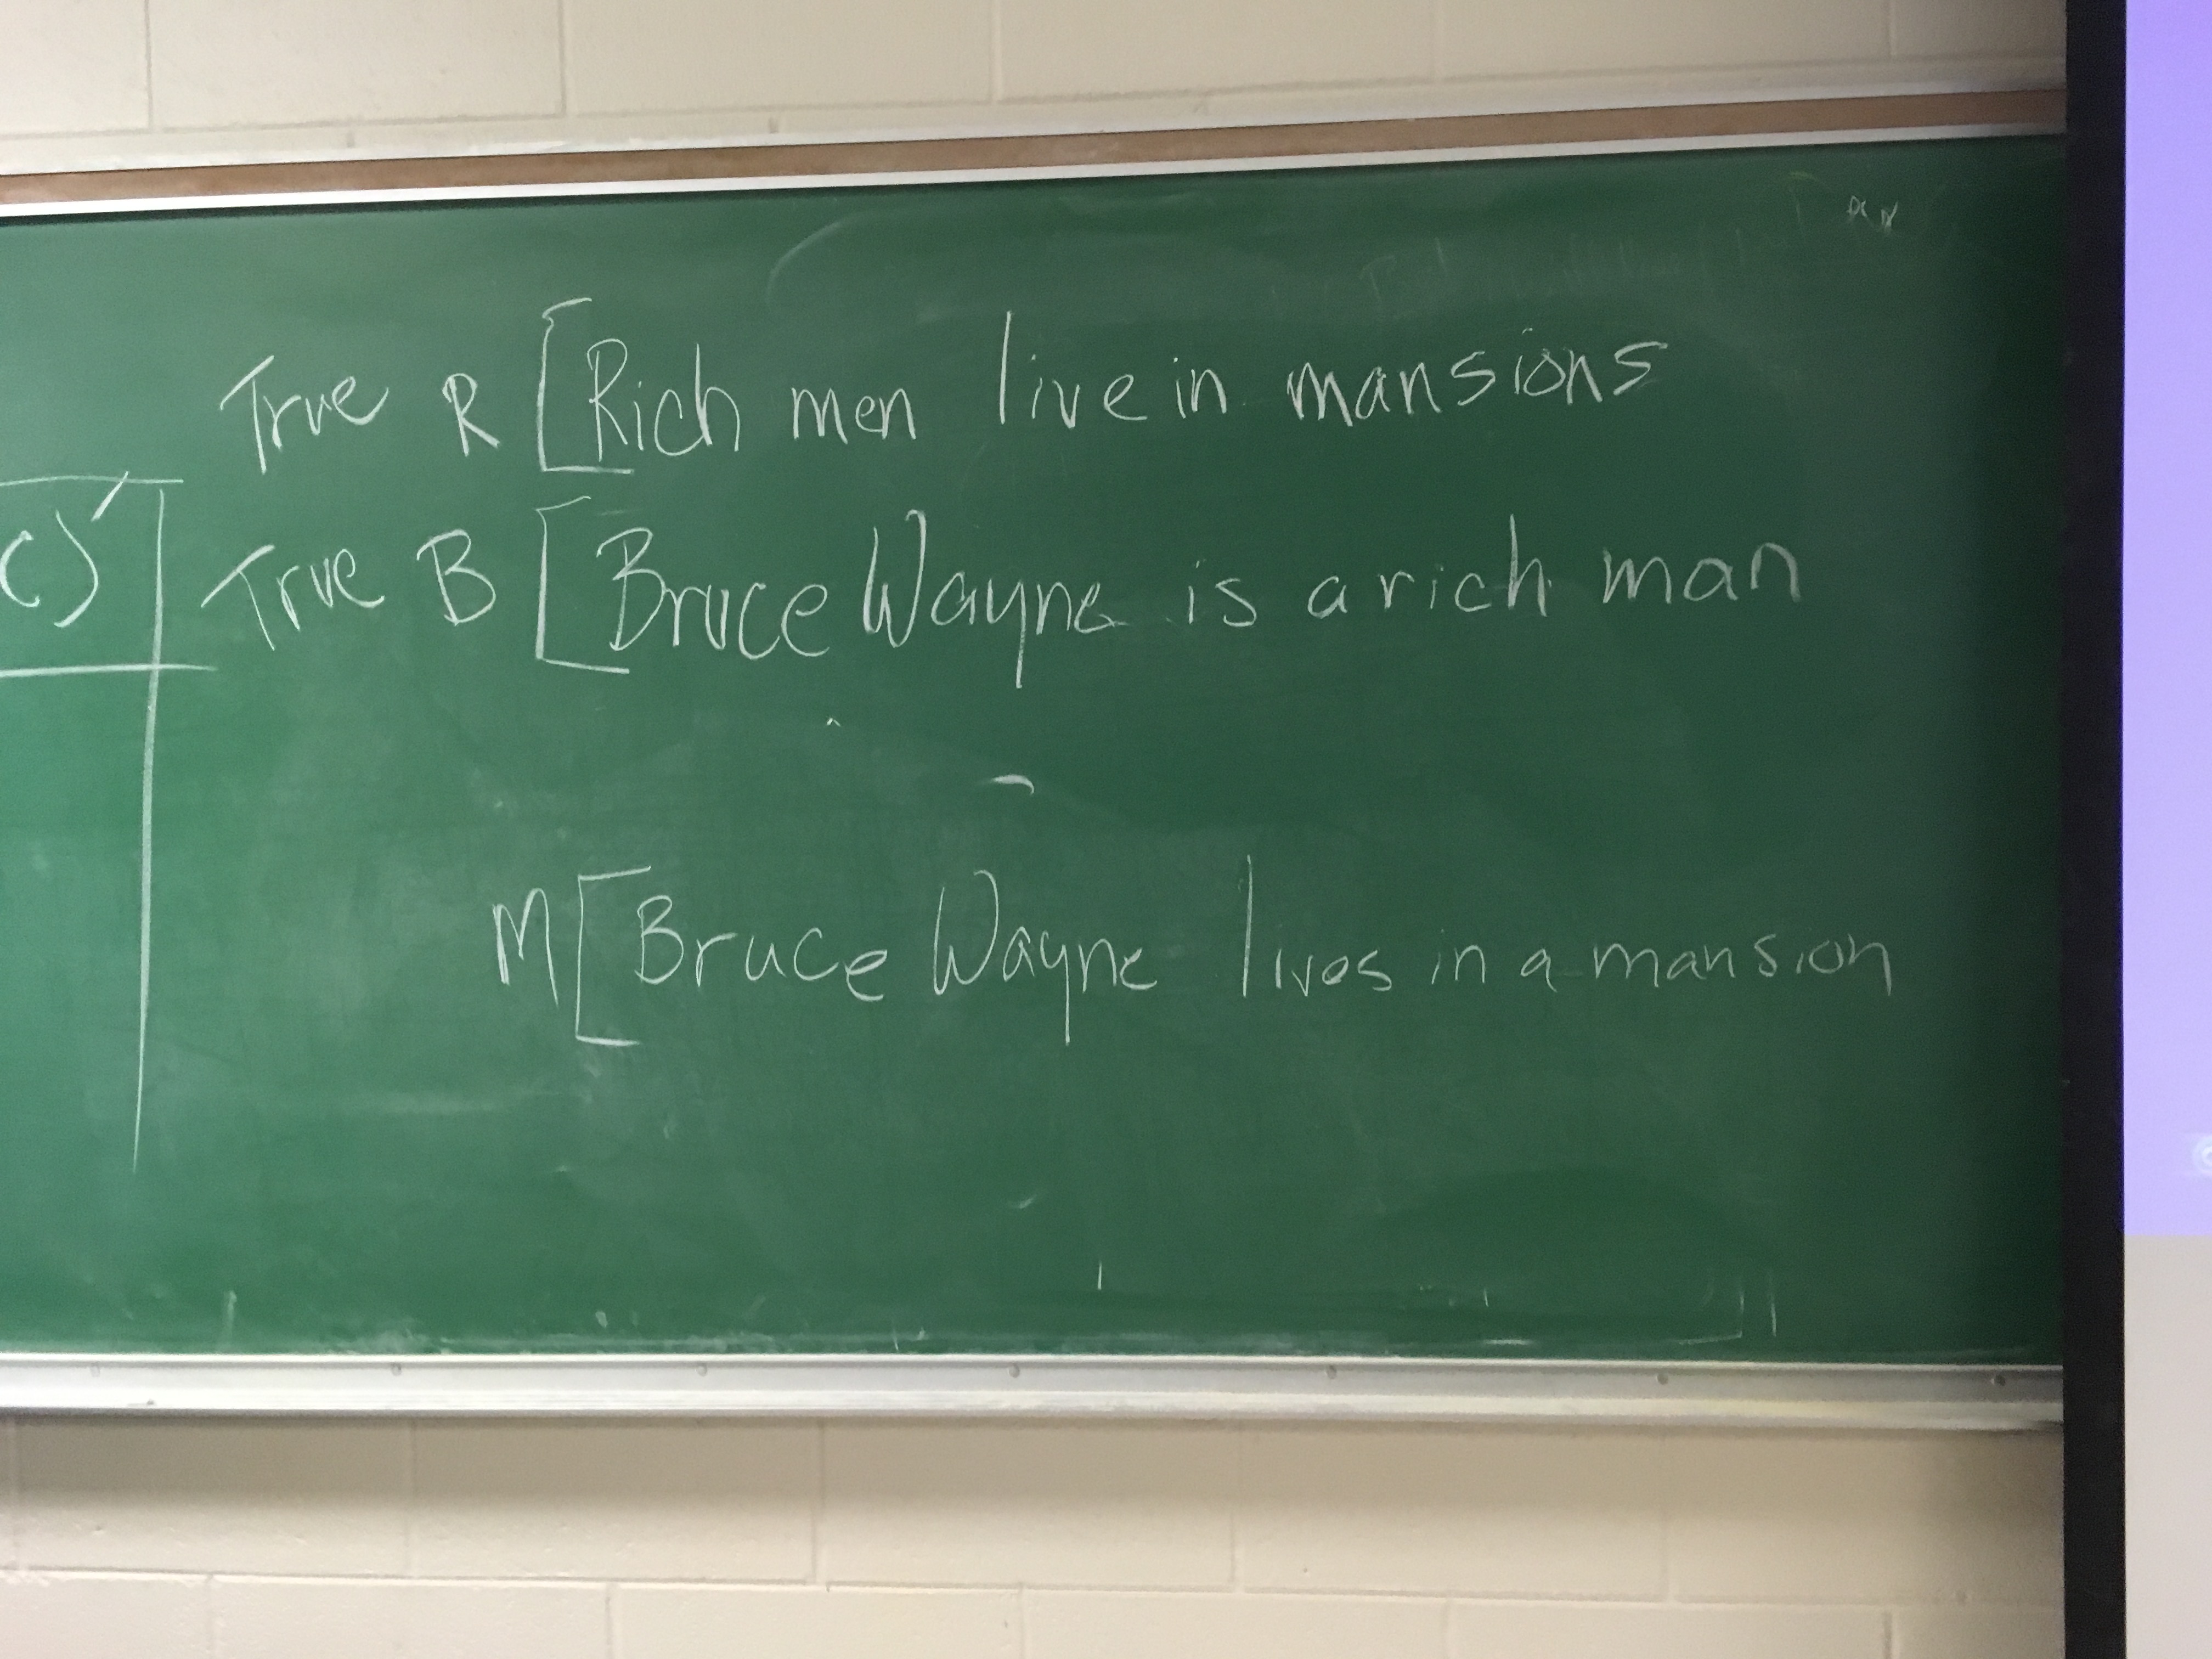 True R [Rich men live in mansions
c)'
True B [Bruce Wayne is a rich man
M[Bruce Wayne lives in a mansion